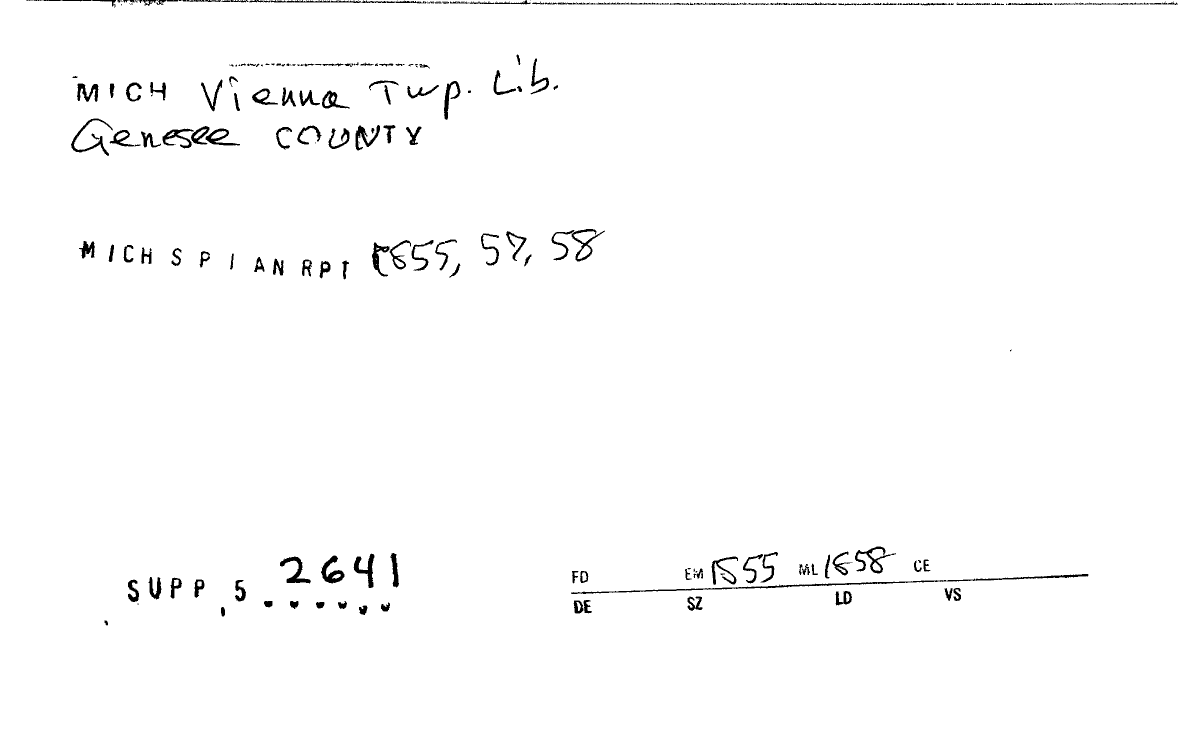 MICH Vienna Twp. Lib.
Genesee COUNTY
MICH S P I AN RPT 1855, 57, 58
SUPP, 5 2641
FD EM 1855 ML 1858 CE
DE SZ LD VS